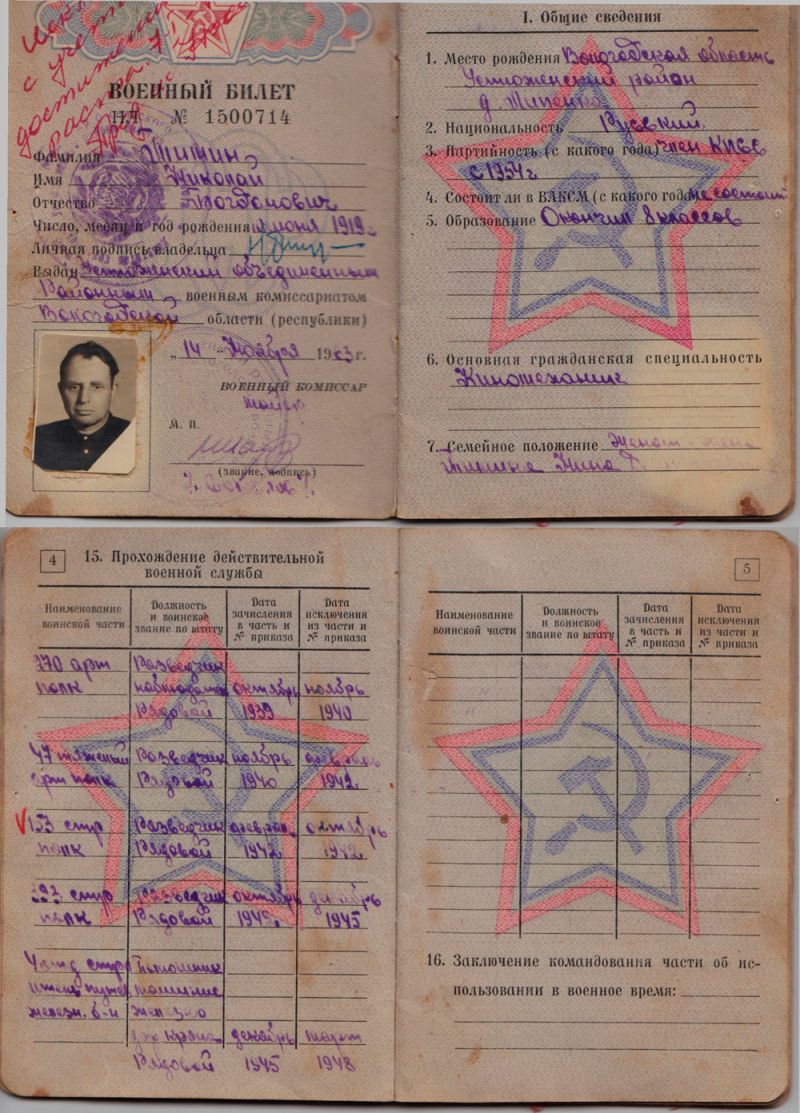 с учета
ВОЕННЫЙ БИЛЕТ
НЛ № 1500714
Фамилия Титин
Имя Николай
Отчество Богданович
Число, месяц и год рождения июня 1919
Личная подпись владельца
Выдан объединенным
Районным военным комиссариатом
Вологодской области (республики)
„14 Ноября 1963 г.
ВОЕННЫЙ КОМИССАР
М. П.
(звание, подпись)
I. Общие сведения
1. Место рождения Вологодская область
Устюженский район
д.
2. Национальность Русский
3. Партийность (с какого года) член КПСС
с 1954 г
4. Состоит ли в ВЛКСМ (с какого года) не состоит
5. Образование Окончил 8 классов
6. Основная гражданская специальность
Киномеханик
7. Семейное положение Женат - жена
Нина
4
15. Прохождение действительной
военной службы
Наименование воинской части
Должность и воинское звание по штату
Дата зачисления в часть и № приказа
Дата исключения из части и № приказа
370 арт Разведчик
полк наблюдатель октябрь ноябрь
Рядовой 1939 1940
47 тяжелый Разведчик ноябрь февраль
арт полк Рядовой 1940 1942
153 стр Разведчик феврал октябрь
полк Рядовой 1942 1942
393 стр Разведчик октябрь декабрь
полк Рядовой 1942 1945
Помошник
железн.
крана декабрь март
Рядовой 1945 1948
5
Наименование воинской части
Должность и воинское звание по штату
Дата зачисления в часть и № приказа
Дата исключения из части и № приказа
16. Заключение командования части об ис-
пользовании в военное время: